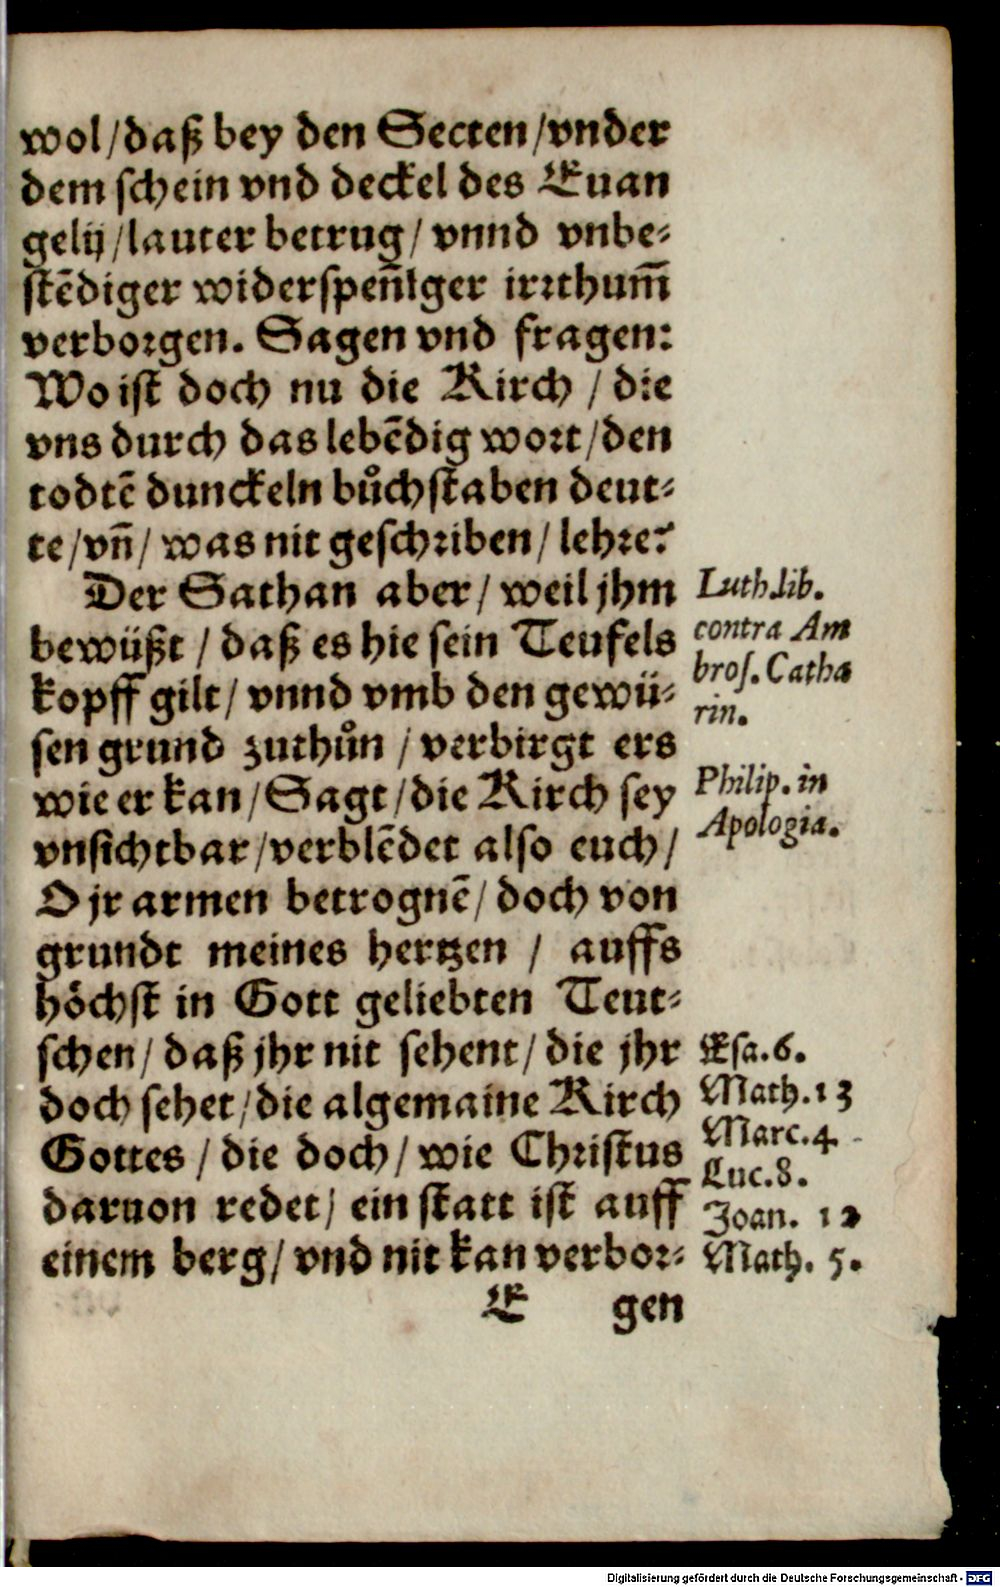 wol/daß bey den Secten/vnder
dem schein vnd deckel des Euan
gelij/lauter betrug/vnnd vnbe-
stēdiger widerspen̄iger irrthum̄
verborgen. Sagen vnd fragen:
Wo ist doch nu die Kirch / die
vns durch das lebēdig wort/den
todtē dunckeln bůchstaben deut-
te/vn̄/ was nit geschriben/ lehre?
Der Sathan aber/ weil jhm
bewüßt / daß es hie sein Teufels
kopff gilt/ vnnd vmb den gewü-
sen grund zuthůn / verbirgt ers
wie er kan/Sagt/die Kirch sey
vnsichtbar/verblēdet also euch/
O jr armen betrognē/ doch von
grundt meines hertzen / auffs
höchst in Gott geliebten Teut-
schen/ daß jhr nit sehent/ die jhr
doch sehet/die algemaine Kirch
Gottes / die doch/ wie Christus
daruon redet/ ein statt ist auff
einem berg/ vnd nit kan verbor-
E gen
Luth.lib.
contra Am
bros. Catha
rin.
Philip. in
Apologia.
Esa.6.
Math.13
Marc.4.
Luc.8.
Joan. 12
Math. 5.
Digitalisierung gefördert durch die Deutsche Forschungsgemeinschaft - DFG